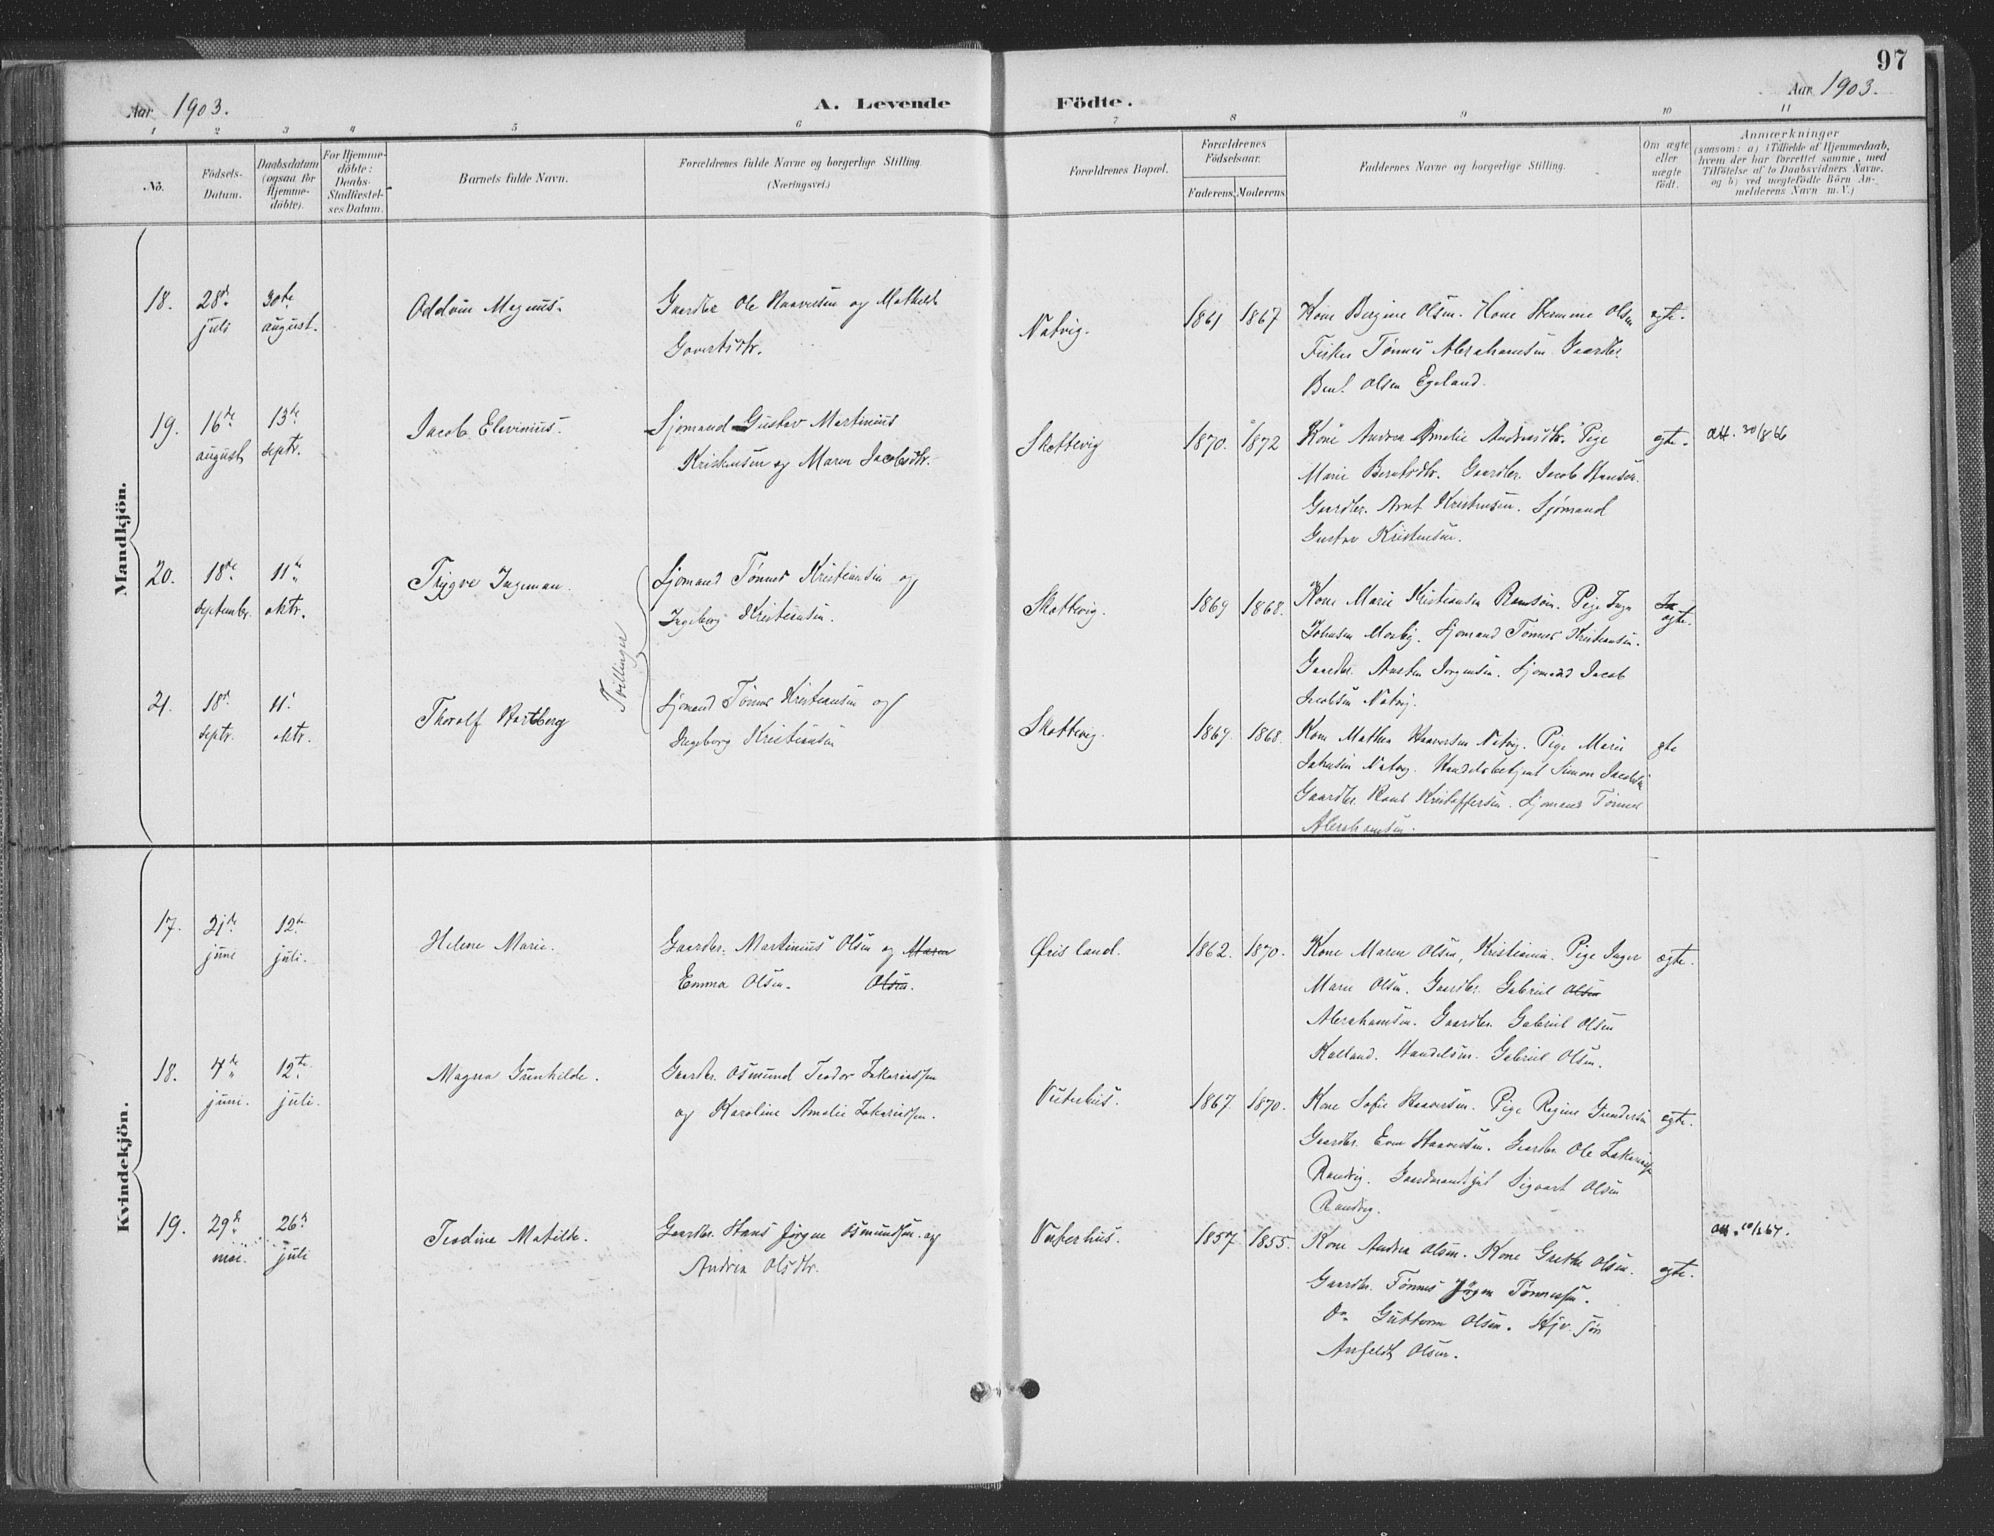 97
Aar 1903.
A. Levende Födte.
Aar 1903.
1 2 3 4 5 6 7 8 9 10 11
No.
Födsels-
Datum.
Daabsdatum
(ogsaa for
Hjemme-
döbte).
For Hjemme-
döbte:
Daabs-
Stadfæstel-
ses Datum.
Barnets fulde Navn.
Forældrenes fulde Navne og borgerlige Stilling.
(Næringsvei.)
Forældrenes Bopæl.
Forældrenes
Födselsaar.
Faderens. Moderens.
Faddernes Navne og borgerlige Stilling.
Om ægte
eller
uægte
födt.
Anmærkninger
(saasom: a) i Tilfælde af Hjemmedaab,
hvem der har forrettet samme, med
Tilföielse af to Daabsvidners Navne,
og b) ved uægtefödte Börn An-
melderens Navn m. V.)
Mandkjön.
18.
28de
juli
30te
august.
Oddvin Magnus.
Gaardbr Ole Haaversen og Mathilde
Govertsdtr.
Natvig.
1861
1867
Kone Bergine Olsen. Kone Olsen
Fisker Tønnes Abrahamsen. Gaardbr.
Bent Olsen Egeland.
egte.
19.
16de
august
13de
septr.
Jacob Elevinius.
Sjømand Gustav Martinius
Kristensen og Maren Jacobsdtr.
Skottevig
1870.
1872
Kone Andrea Amalie Andreasdtr. Pige
Marie Berntsdtr. Gaardbr. Jacob Hansen.
Gaardbr. Arnt Kristensen. Sjømand
Gustav Kristensen.
egte.
att. 30/8 66
20.
18de
septembr.
11te
oktr.
Trygve Ingeman.
Tvillinger
Sjømand Tønnes Kristiansen og
Ingeborg Kristiansen.
Skottevig.
1869
1868.
Kone Marie Kristiansen Ramsøen. Pige Inga
Johnsen Mosby. Sjømand Tønnes Kristiansen.
Gaardbr. Austen Jørgensen. Sjømand Jacob
Jacobsen Natvig.
egte.
21.
18de
septr.
11.
oktr.
Thorolf Hartberg
Sjømand Tønnes Kristiansen og
Ingeborg Kristiansen
Skottevig.
1869.
1868.
Kone Mathea Haaversen Natvig. Pige Marie
Johnsen Natvig. Handelsbetjent Simon Jacobsen
Gaardbr. Kristoffersen. Sjømand Tønnes
Abrahamsen.
gte
Kvindekjön.
17.
21de
juni
12te
juli.
Helene Marie.
Gaardbr. Martinius Olsen og Maren
Emma Olsen. Olsen.
Øris land.
1862.
1870.
Kone Maren Olsen, Kristiania. Pige Inger
Marie Olsen. Gaardbr. Gabriel Olsen
Abrahamsen. Gaardbr. Gabriel Olsen
Kalland. Handelsm. Gabriel Olsen.
ægte.
18.
4de
juni.
12te
juli.
Magna Gunhilde.
Gaardbr. Osmund Teodor Zakariassen
og Karoline Amalie Zakariassen.
Viterhus.
1867
1870.
Kone Sofie Haaversen. Pige Regine Gundersen
Gaardbr. Even Haaversen. Gaardbr. Ole Zakariassen
Randvig. Sigvart Olsen
Randvig.
egte.
19.
29de
mai.
26de
juli
Teodine Matilde.
Gaardbr. Hans Jørgen Osmundsen og
Andrea Olsdtr.
Viterhus.
1857
1855.
Kone Andrea Olsen. Kone Grethe Olsen.
Gaardbr. Tønnes Jörgen Tønnessen.
Do Guttorm Olsen. Hjv. søn
Anfeldt Olsen.
egte.
att. 10/1 67.